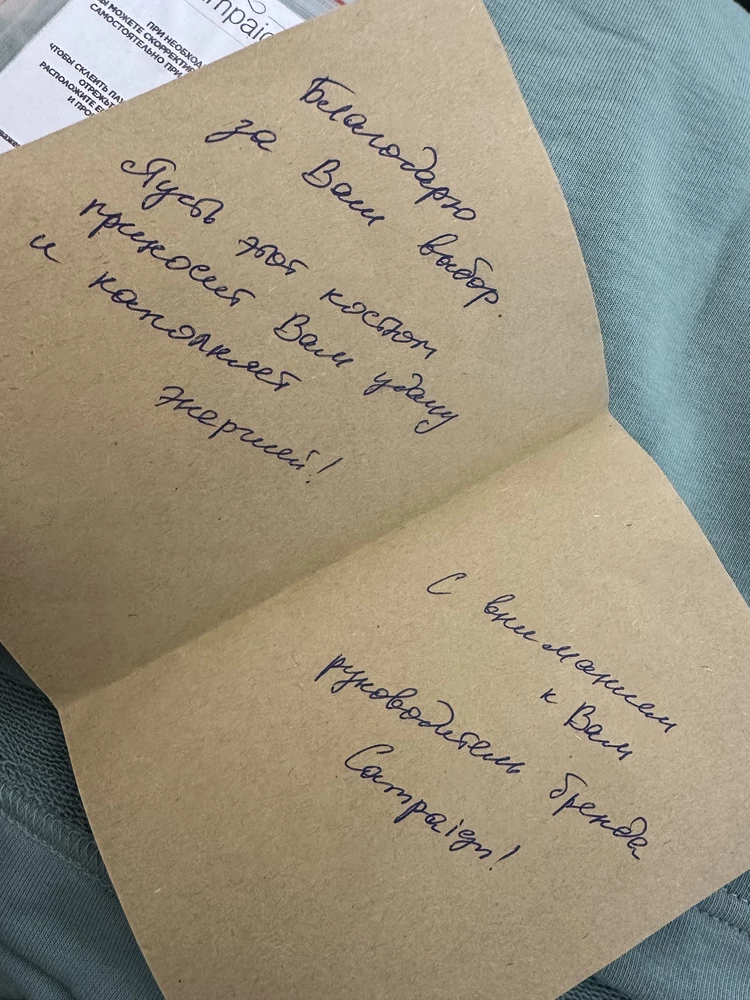 mpaig
ПРИ НЕОБХОД
ВЫ МОЖЕТЕ СКОРРЕКТИР
САМОСТОЯТЕЛЬНО ПРИ
ЧТОБЫ СКЛЕИТЬ ПА
ОТРЕЖЬ
РАСПОЛОЖИТЕ Е
И ПРО
Благодарю
за Ваш выбор
Пусть этот костюм
приносит Вам удачу
и наполняет
энергией!
С вниманием
к Вам
руководитель бренда
Campaign!